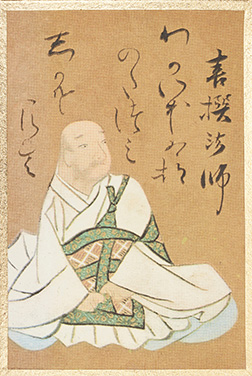 喜撰法師
わかいほは都
のたつみ
しかそ
すむ